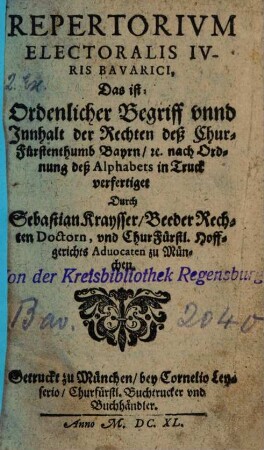 REPERTORIVM
ELECTORALIS IV-
RIS BAVARICI,
2. Ex.
Das ist:
Ordenlicher Begriff vnnd
Jnnhalt der Rechten deß Chur-
Fürstenthumb Bayrn/ ꝛc. nach Ord-
nung deß Alphabets in Truck
verfertiget
Durch
Sebastian Kraysser/ Beeder Rech-
ten Doctorn, vnd ChurFürstl. Hoff-
gerichts Aduocaten zu Mün-
chen.
Von der Kreisbibliothek Regensburg
Bav. 2040
Getruckt zu München/ bey Cornelio Ley-
serio/ Churfürstl. Buchtrucker vnd
Buchhändler.
Anno M. DC. XL.